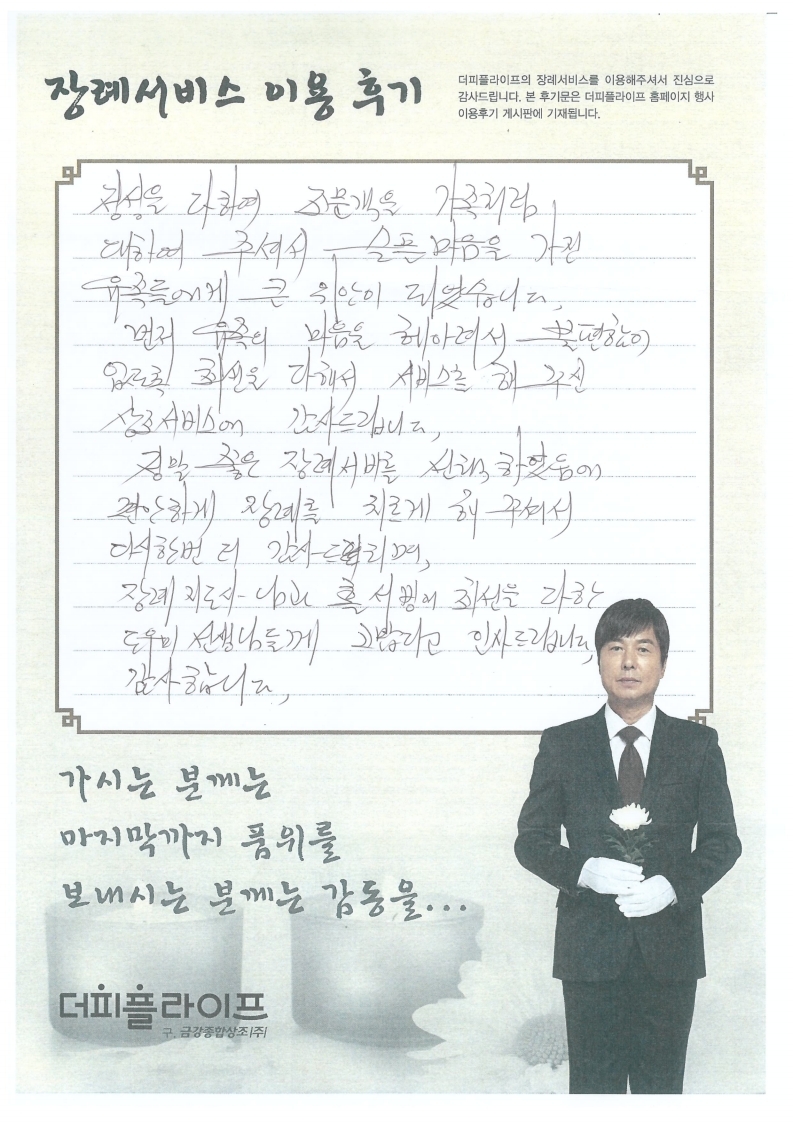 장례서비스 이용 후기
더피플라이프의 장례서비스를 이용해주셔서 진심으로
감사드립니다. 본 후기문은 더피플라이프 홈페이지 행사
이용후기 게시판에 기재됩니다.
정성을 다하여 조문객을 가족처럼
대하여 주셔서 슬픈 마음을 가진
유족들에게 큰 위안이 되었습니다.
먼저 유족의 마음을 헤아려서 불편함이
없도록 최선을 다해서 서비스를 해 주신
상조서비스에 감사드립니다.
정말 좋은 장례서비를 선택하였음에
편안하게 장례를 치르게 해 주셔서
다시한번 더 감사드리며,
장례지도사님과 홀서빙의 최선을 다한
도우미 선생님들께 고맙다고 인사드립니다.
감사합니다.
가시는 분께는
마지막까지 품위를
보내시는 분께는 감동을...
더피플라이프
구. 금강종합상조(주)